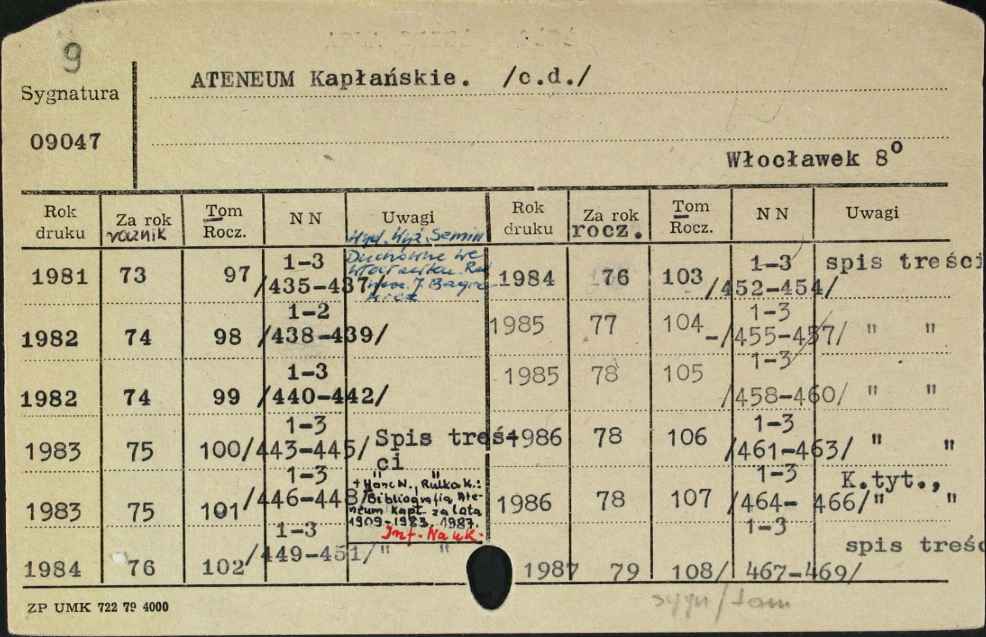 9
ATENEUM Kapłańskie. /c.d./
Sygnatura
09047
Włocławek 8°
Rok druku Za rok rocznik Tom Rocz. N N Uwagi
1981 73 97 1-3 /435-437/ Wyd. Wyż. Semin Duchowne we
1982 74 98 1-2 /438-439/
1982 74 99 1-3 /440-442/
1983 75 100 1-3 /443-445/ Spis treś-
ci
1983 75 101 1-3 /446-448/ + Harc N., Rulka K.:
Bibliografia Ate-
neum Kapł. za lata
1909-1983, 1987.
Inf. Nauk.
1984 76 102 1-3 /449-451/ " "
Rok druku Za rok rocz. Tom Rocz. N N Uwagi
1984 76 103 1-3 /452-454/ spis treści
1985 77 104 1-3 -/455-457/ " "
1985 78 105 1-3 /458-460/ " "
1986 78 106 1-3 /461-463/ " "
1986 78 107 1-3 /464-466/ K.tyt.,
" "
1987 79 108 1-3 / 467-469/ spis treśc
sygn/tom
ZP UMK 722 79 4000